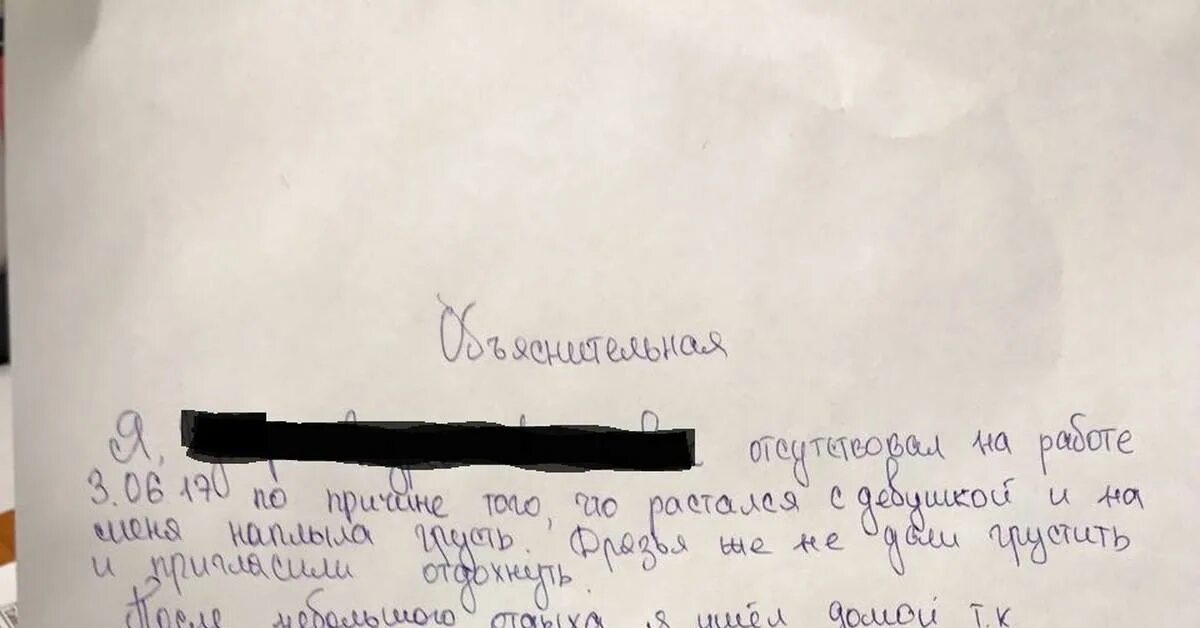 Объяснительная
Я, отсутствовал на работе
3.06 17 по причине того, что растался с девушкой и на
меня наплыла грусть. Друзья же не дали грустить
и пригласили отдохнуть.
После небольшого отдыха я ушёл домой т.к